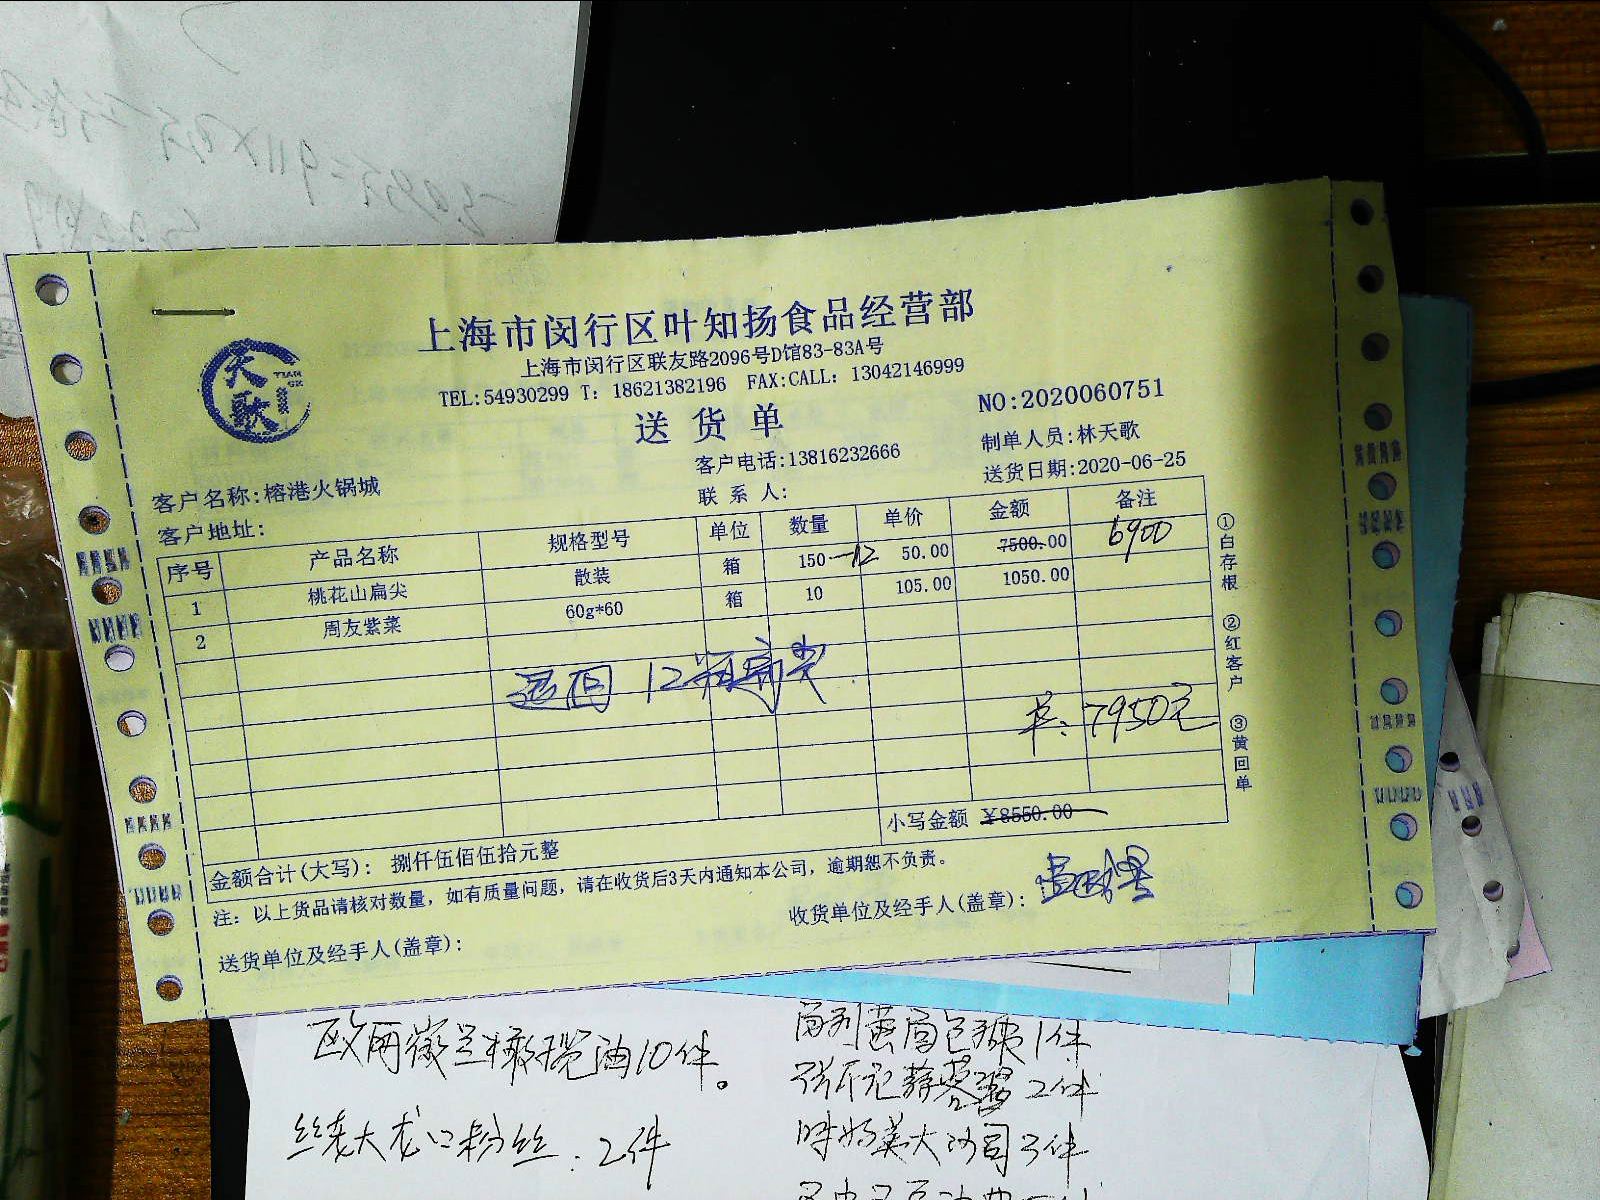 天歌
TIAN
GE
上海市闵行区叶知扬食品经营部
上海市闵行区联友路2096号D馆83-83A号
TEL:54930299 T: 18621382196 FAX:CALL: 13042146999
送 货 单
NO:2020060751
制单人员:林天歌
客户电话:13816232666
送货日期:2020-06-25
客户名称:榕港火锅城
联 系 人:
客户地址:
序号 产品名称 规格型号 单位 数量 单价 金额 备注
1 桃花山扁尖 散装 箱 150 -12 50.00 7500.00 6900
2 周友紫菜 60g*60 箱 10 105.00 1050.00
退回 12箱扁尖
7950元
小写金额 ¥8550.00
金额合计(大写): 捌仟伍佰伍拾元整
注: 以上货品请核对数量，如有质量问题，请在收货后3天内通知本公司，逾期恕不负责。
收货单位及经手人(盖章):
送货单位及经手人(盖章):
①白存根 ②红客户 ③黄回单
欧丽薇兰橄榄油10件。
大龙口粉丝. 2件
1件
2件
大沙司3件